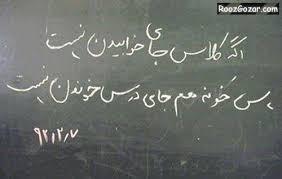 RoozGozar.com
اگه کلاس جای خوابیدن نیست
پس خونه هم جای درس خوندن نیست
۹۲/۲/۷